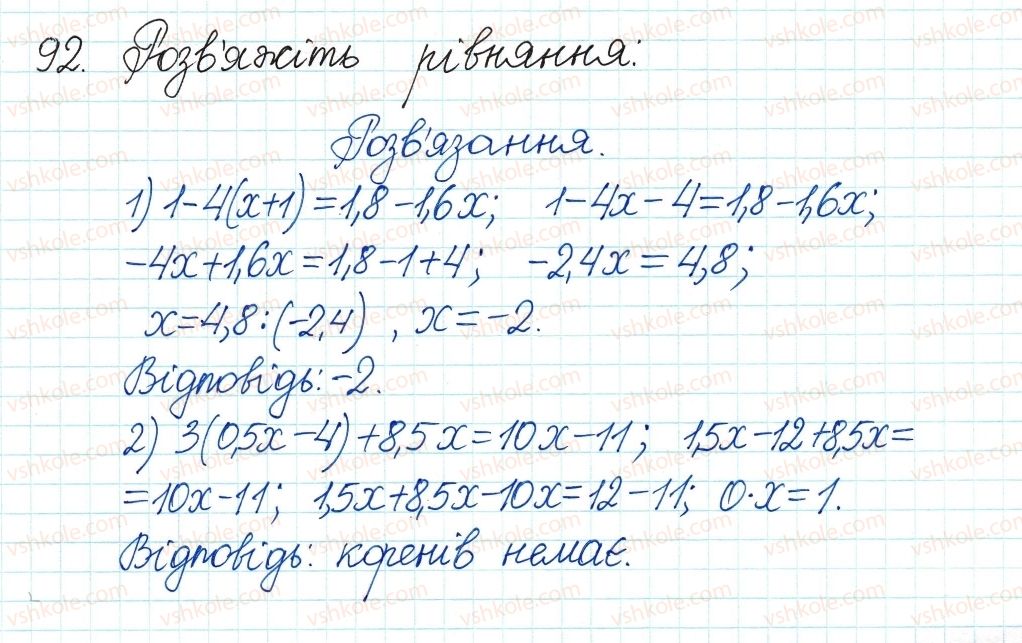 92. Розв'яжіть рівняння:
Розв'язання.
1) 1-4(x+1)=1,8-1,6x; 1-4x-4=1,8-1,6x;
-4x+1,6x=1,8-1+4; -2,4x=4,8;
x=4,8:(-2,4), x=-2.
Відповідь: -2.
2) 3(0,5x-4)+8,5x=10x-11; 1,5x-12+8,5x=
=10x-11; 1,5x+8,5x-10x=12-11; 0·x=1.
Відповідь: коренів немає.